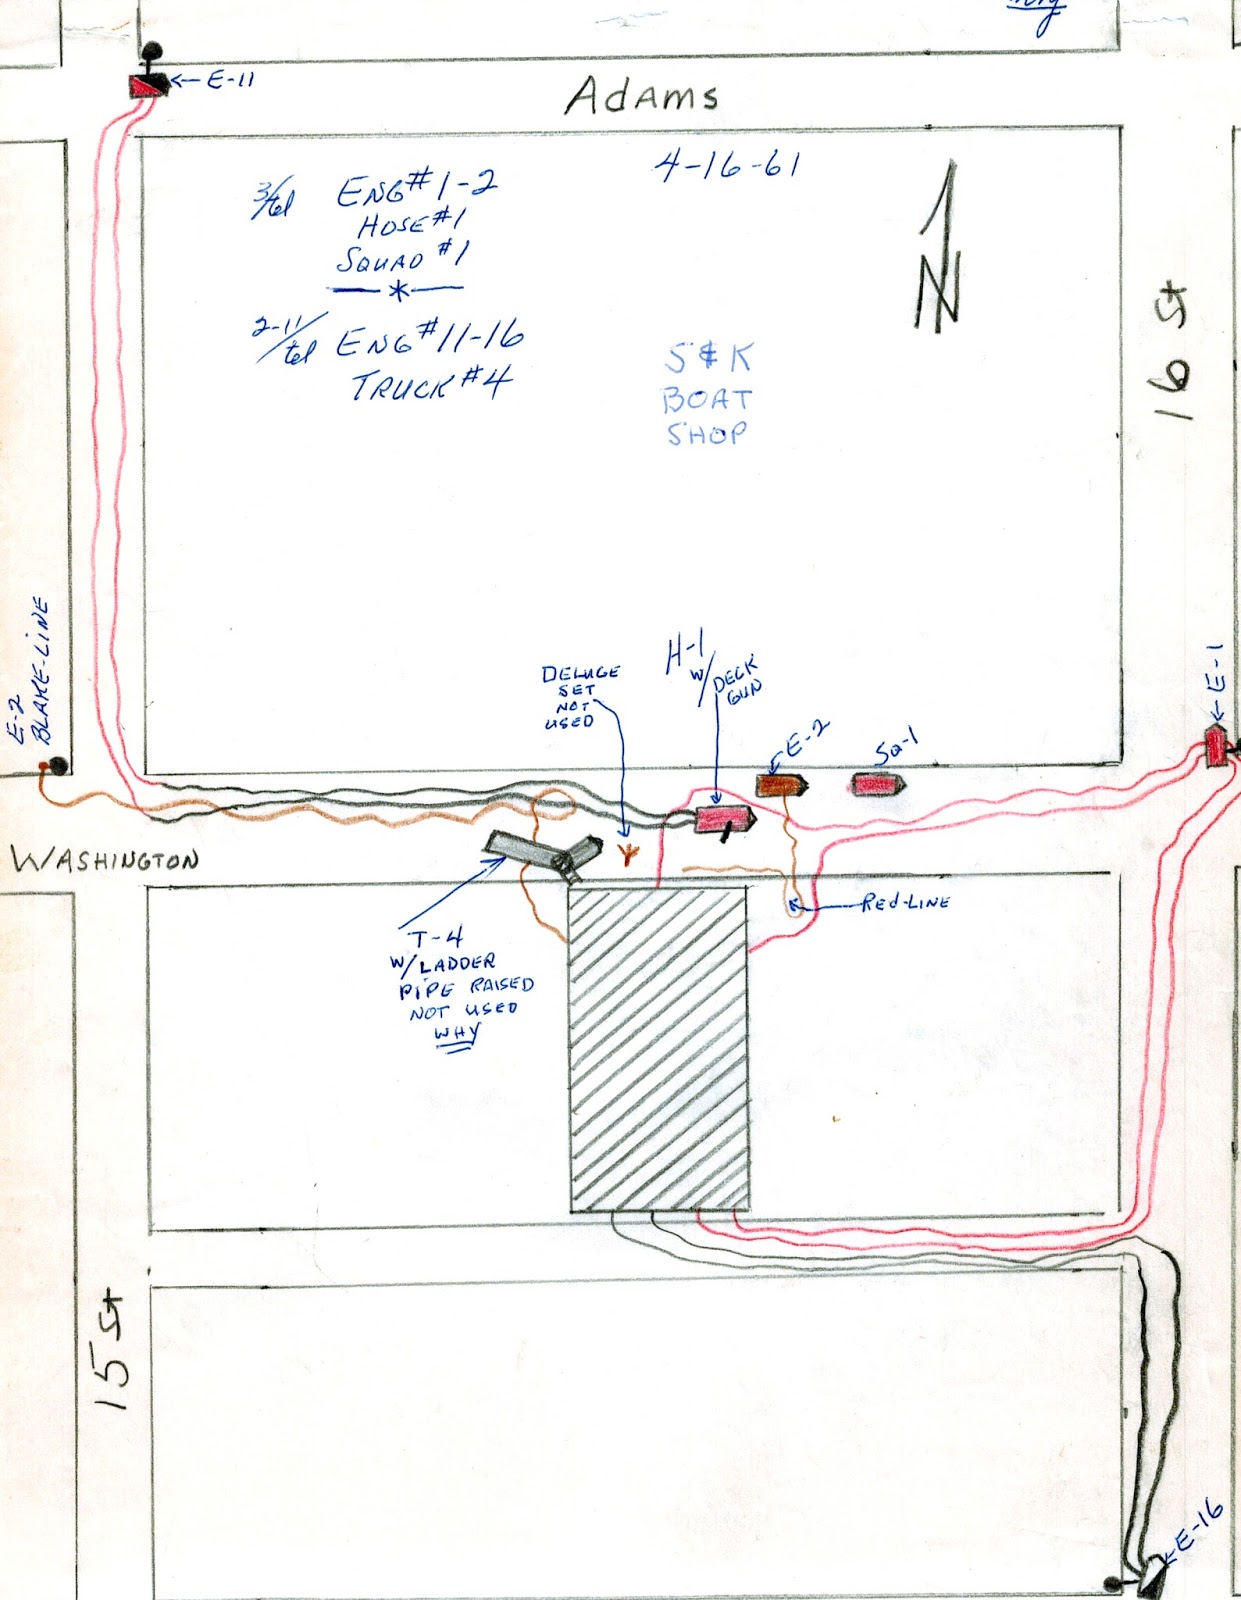 E-11
Adams
4-16-61
3/tel ENG #1-2
HOSE #1
SQUAD #1
2-11/tel ENG #11-16
TRUCK #4
N
16 St
S & K
BOAT
SHOP
E-2
BLAKE-LINE
DELUGE
SET
NOT
USED
H-1
W/DECK
GUN
E-2
Sq-1
E-1
WASHINGTON
RED-LINE
T-4
W/LADDER
PIPE RAISED
NOT USED
WHY
15 St
E-16